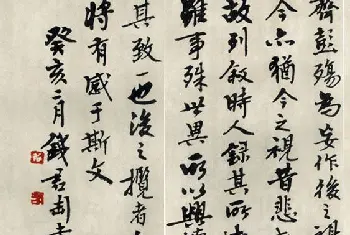 齊彭殤為妄作後之視
今亦猶今之視昔悲
故列敘時人錄其所
雖事殊世異所以興
其致一也後之攬者
時有感于斯文
癸亥二月錢君匋